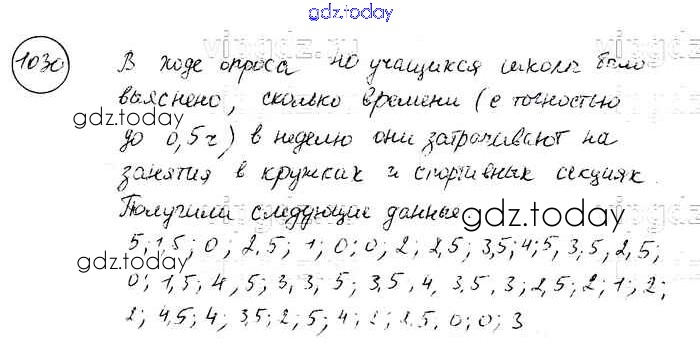 gdz.today
1030 В ходе опроса 40 учащихся школы было
выяснено, сколько времени (с точностью
до 0,5 ч) в неделю они затрачивают на
занятия в кружках и спортивных секциях.
Получили следующие данные:
5; 1,5; 0; 2,5; 1; 0; 0; 2; 2,5; 3,5; 4; 5, 3,5, 2,5;
0; 1,5; 4, 5; 3, 3; 5; 3,5, 4, 3,5, 3; 2,5; 2; 1; 2;
2; 4,5; 4; 3,5; 2; 5; 4; 2,5, 0; 0; 3
gdz.today
gdz.today
gdz.today
gdz.today